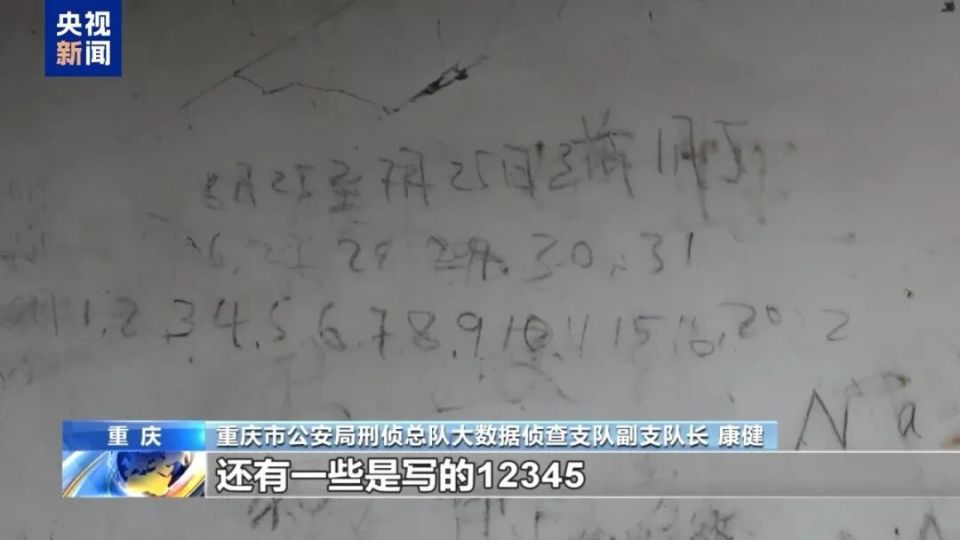 央视
新闻
8月25至7月25日
29.30.31
1.2.3.4.5.6.7.8.9.10.11 15.16.20 2
Na
重庆
重庆市公安局刑侦总队大数据侦查支队副支队长 康健
还有一些是写的12345